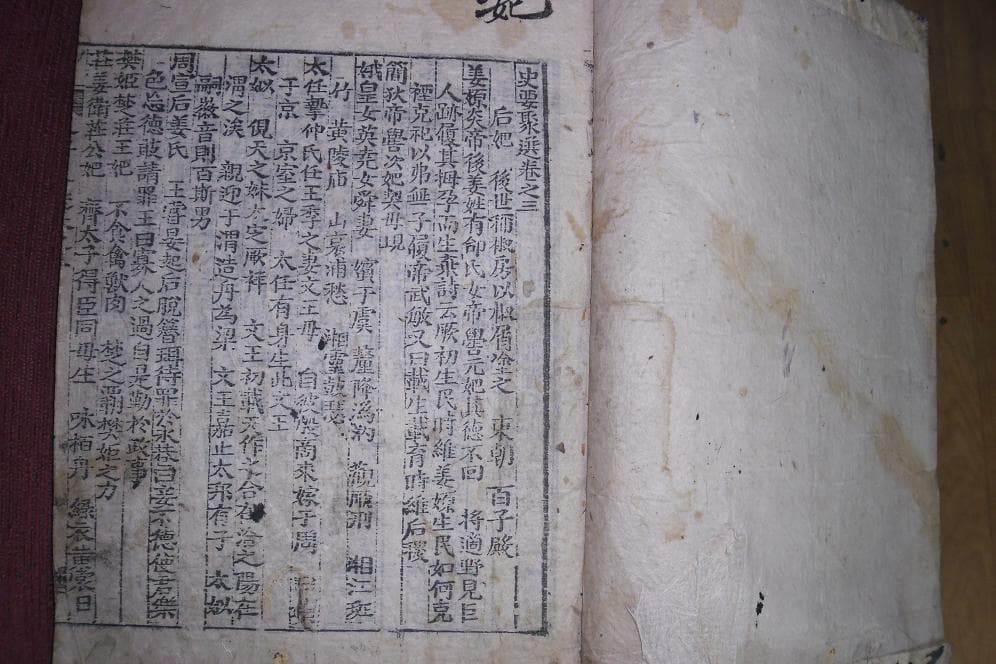 妃
史要聚選卷之三
后妃 後世稱椒房以椒屑塗之 東朝 百子殿
姜嫄炎帝後姜姓有邰氏女帝嚳元妃其德不回 将適野見巨
人跡履其拇孕而生棄詩云厥初生民時維姜嫄生民如何克
禋克祀以弗無子履帝武敏又曰載生載育時維后稷
簡狄帝嚳次妃契母現
娥皇女英堯女舜妻 嬪于虞 釐降溈汭 觀厥刑 湘江班
竹 黄陵庙 山哀浦愁 湘靈鼓瑟
太任摯仲氏任王季之妻文王母 自彼殷商來嫁于周
于京 京室之婦 太任有身生此文王
太姒 俔天之妹文定厥祥 文王初載天作之合在洽之陽在
渭之涘 親迎于渭造舟為梁 文王嘉止太邦有子 太姒
嗣徽音則百斯男
周宣后姜氏 王嘗晏起后脫簪珥待罪於永巷曰妾不德使君樂
色忘德敢請罪王曰寡人之過自是勤於政事
樊姬楚莊王妃 不食禽獸肉 楚之覇樊姬之力
莊姜衛莊公妃 齊太子得臣同母生 咏栢舟 綠衣黄裳日